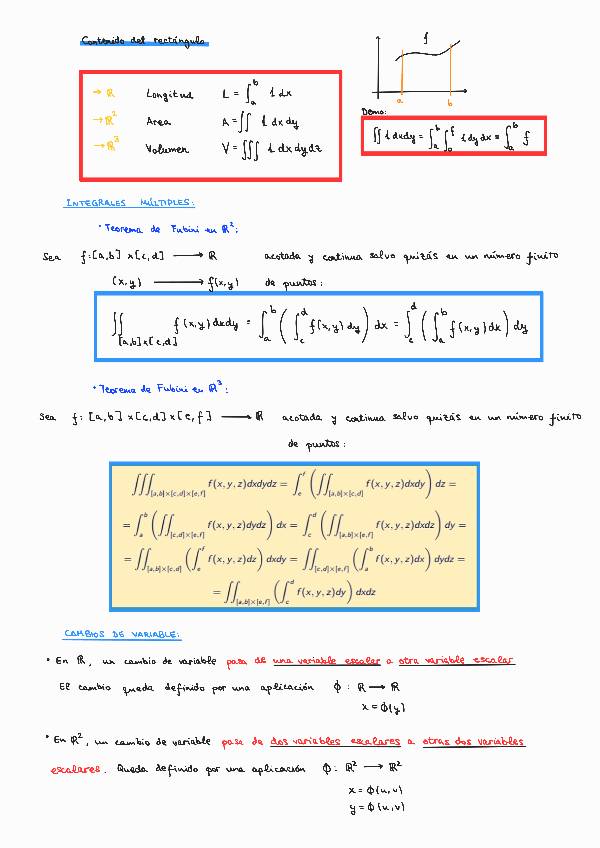 Contenido del rectángulo
f
a b
→ ℝ Longitud L = ∫_a^b 1 dx
→ ℝ² Area A = ∬ 1 dx dy
→ ℝ³ Volumen V = ∭ 1 dx dy dz
Demo:
∬ 1 dxdy = ∫_a^b ∫_0^f 1 dy dx = ∫_a^b f
INTEGRALES MÚLTIPLES:
• Teorema de Fubini en ℝ²:
Sea f: [a,b] x [c,d] → ℝ acotada y continua salvo quizás en un número finito
(x,y) → f(x,y) de puntos:
∬_[a,b]x[c,d] f(x,y) dxdy = ∫_a^b ( ∫_c^d f(x,y) dy ) dx = ∫_c^d ( ∫_a^b f(x,y) dx ) dy
• Teorema de Fubini en ℝ³:
Sea f: [a,b] x [c,d] x [e,f] → ℝ acotada y continua salvo quizás en un número finito
de puntos:
∭_[a,b]×[c,d]×[e,f] f(x, y, z)dxdydz = ∫_e^f ( ∬_[a,b]×[c,d] f(x, y, z)dxdy ) dz =
= ∫_a^b ( ∬_[c,d]×[e,f] f(x, y, z)dydz ) dx = ∫_c^d ( ∬_[a,b]×[e,f] f(x, y, z)dxdz ) dy =
= ∬_[a,b]×[c,d] ( ∫_e^f f(x, y, z)dz ) dxdy = ∬_[c,d]×[e,f] ( ∫_a^b f(x, y, z)dx ) dydz =
= ∬_[a,b]×[e,f] ( ∫_c^d f(x, y, z)dy ) dxdz
CAMBIOS DE VARIABLE:
• En ℝ, un cambio de variable pasa de una variable escalar a otra variable escalar
El cambio queda definido por una aplicación ϕ : ℝ → ℝ
x = ϕ(y)
• En ℝ², un cambio de variable pasa de dos variables escalares a otras dos variables
escalares. Queda definido por una aplicación ϕ: ℝ² → ℝ²
x = ϕ(u,v)
y = ϕ(u,v)